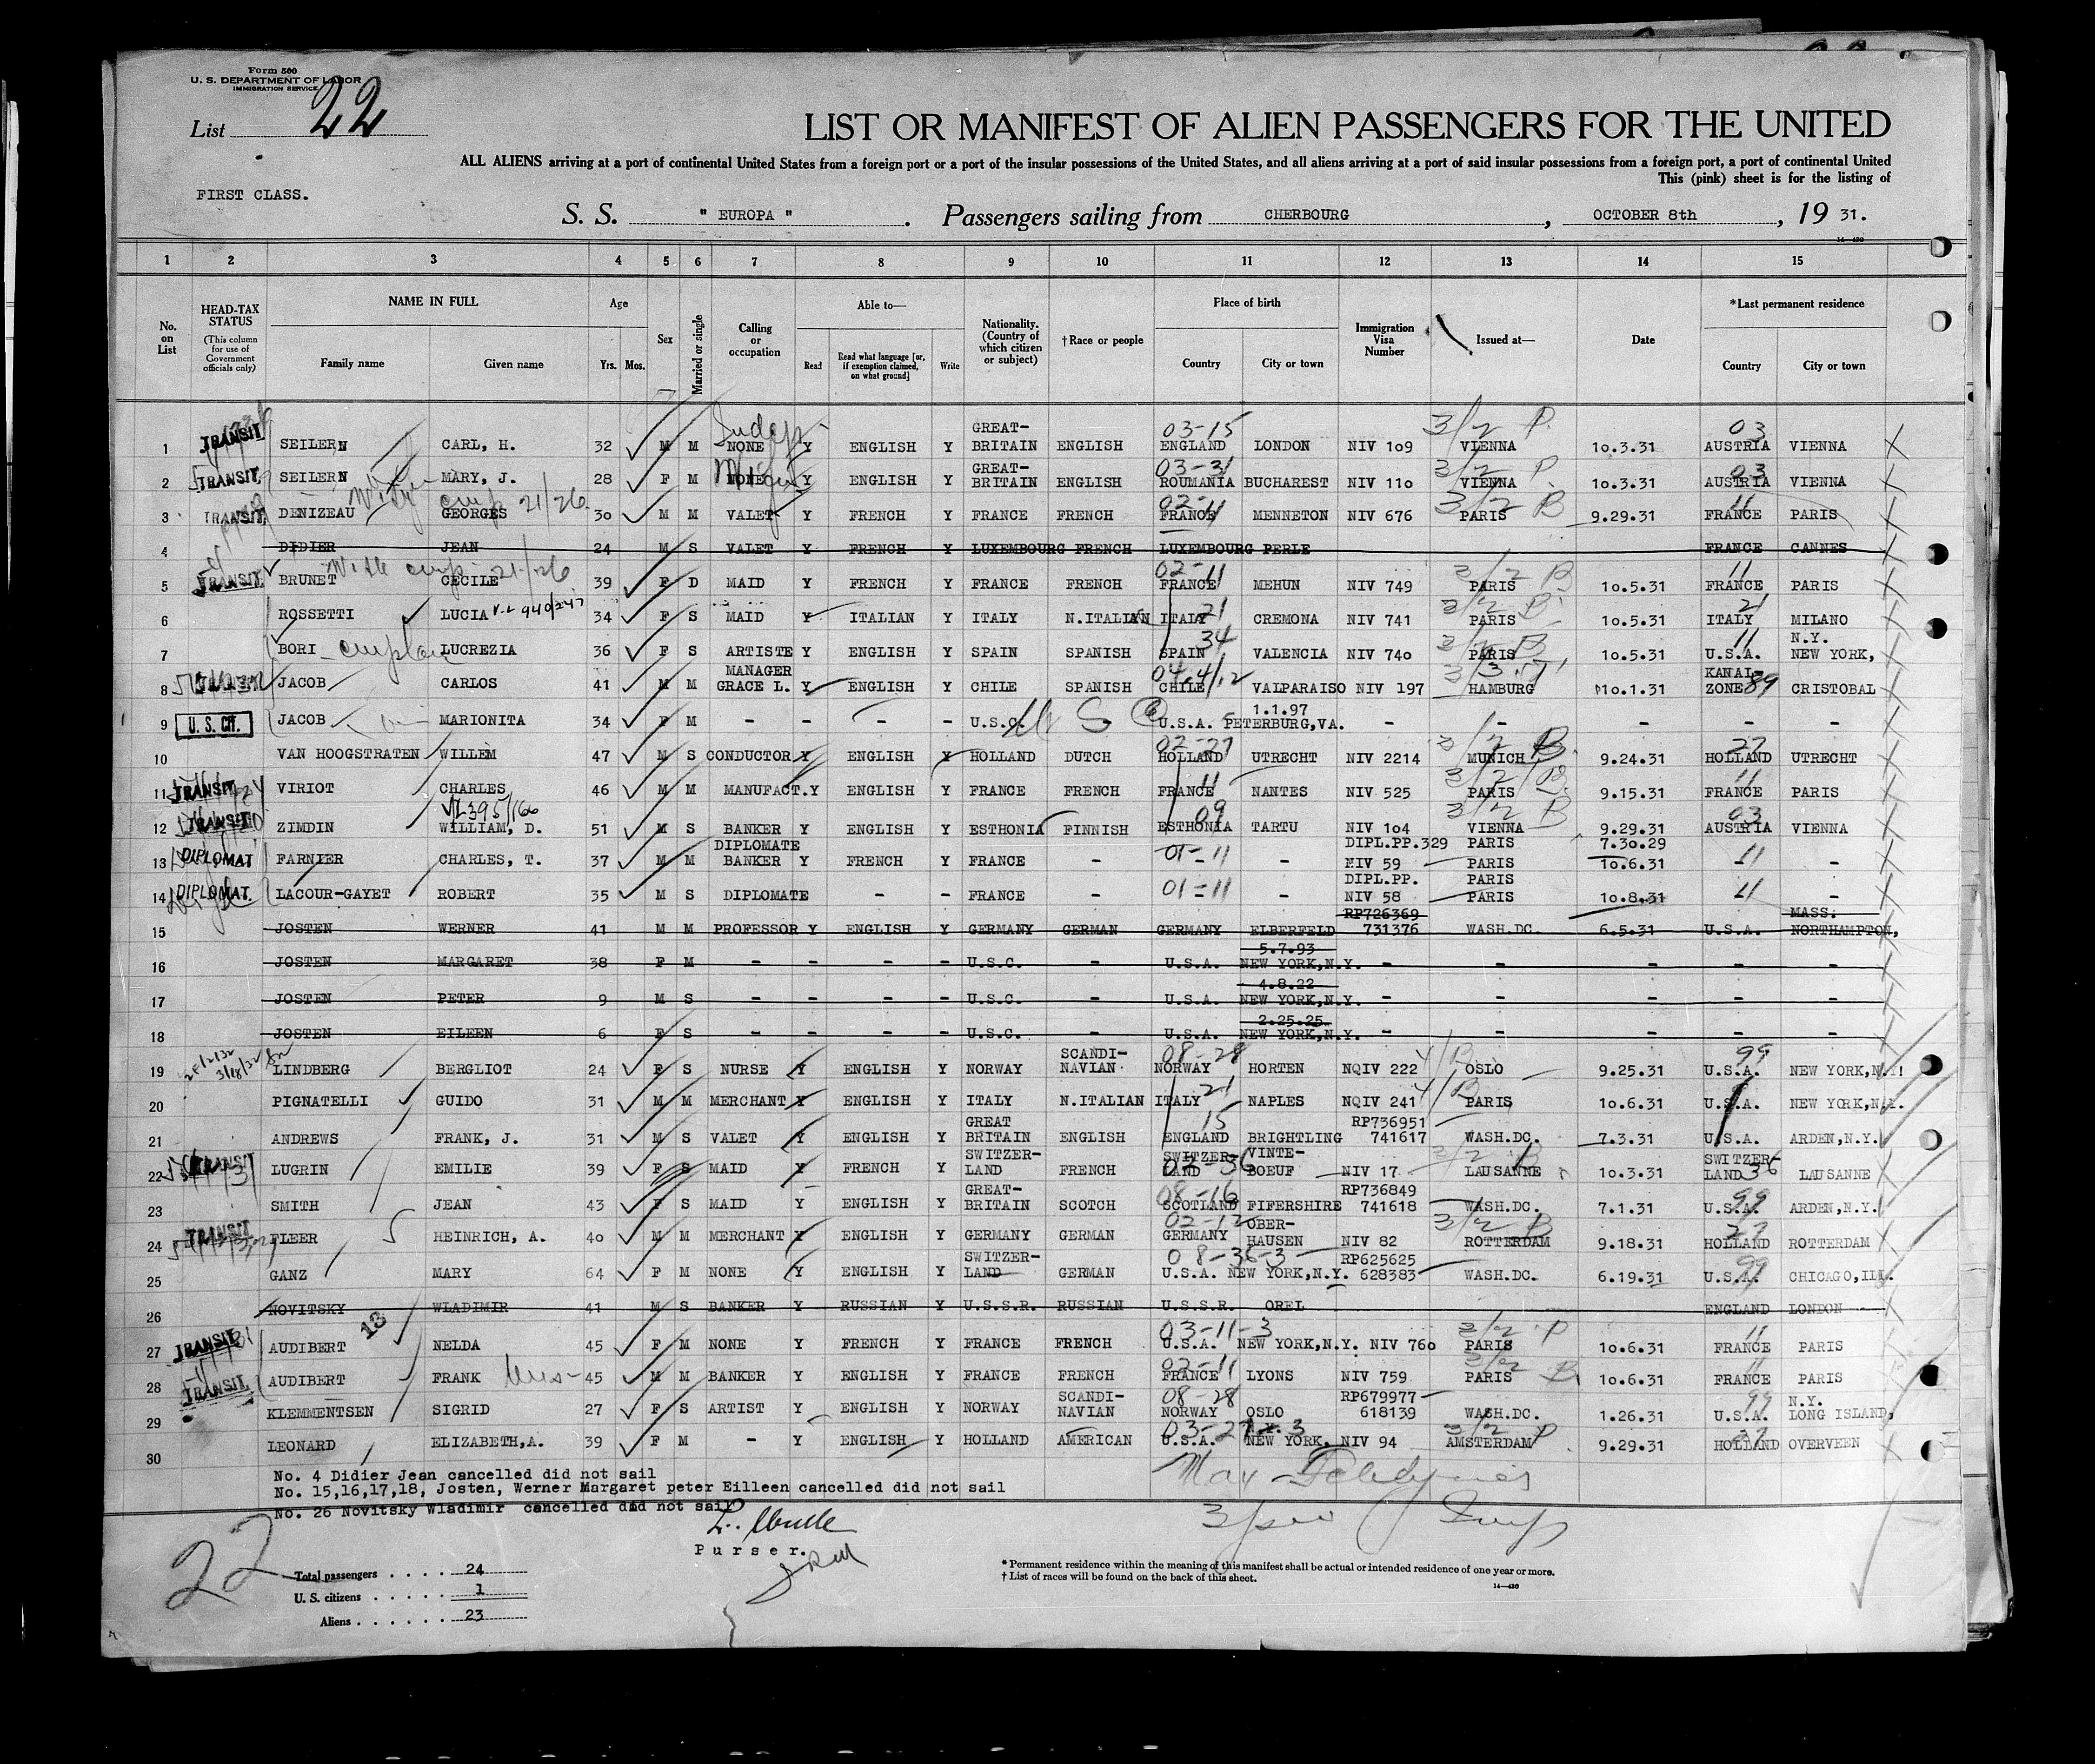 Form 500
U. S. DEPARTMENT OF LABOR
IMMIGRATION SERVICE
List 22
LIST OR MANIFEST OF ALIEN PASSENGERS FOR THE UNITED
ALL ALIENS arriving at a port of continental United States from a foreign port or a port of the insular possessions of the United States, and all aliens arriving at a port of said insular possessions from a foreign port, a port of continental United
This (pink) sheet is for the listing of
FIRST CLASS.
S. S. " EUROPA " . Passengers sailing from CHERBOURG , OCTOBER 8th , 19 31.
14—430
1 2 3 4 5 6 7 8 9 10 11 12 13 14 15
No. on List
HEAD-TAX STATUS (This column for use of Government officials only)
NAME IN FULL Family name Given name
Age Yrs. Mos.
Sex
Married or single
Calling or occupation
Able to— Read Read what language [or, if exemption claimed, on what ground] Write
Nationality. (Country of which citizen or subject)
†Race or people
Place of birth Country City or town
Immigration Visa Number
Issued at—
Date
*Last permanent residence Country City or town
1 TRANSIT SEILERN CARL, H. 32 M M NONE Y ENGLISH Y GREAT-BRITAIN ENGLISH 03-15 ENGLAND LONDON NIV 109 3/2 P. VIENNA 10.3.31 03 AUSTRIA VIENNA
2 TRANSIT SEILERN MARY, J. 28 F M NONE Y ENGLISH Y GREAT-BRITAIN ENGLISH 03-31 ROUMANIA BUCHAREST NIV 110 3/2 P. VIENNA 10.3.31 03 AUSTRIA VIENNA
3 TRANSIT DENIZEAU GEORGES 21/26 30 M M VALET Y FRENCH Y FRANCE FRENCH 02-11 FRANCE MENNETON NIV 676 3/2 B PARIS 9.29.31 11 FRANCE PARIS
4 DIDIER JEAN 24 M S VALET Y FRENCH Y LUXEMBOURG FRENCH LUXEMBOURG PERLE FRANCE CANNES
5 TRANSIT BRUNET CECILE 21/26 39 F D MAID Y FRENCH Y FRANCE FRENCH 02-11 FRANCE MEHUN NIV 749 3/2 B PARIS 10.5.31 11 FRANCE PARIS
6 ROSSETTI LUCIA V.L 940/247 34 F S MAID Y ITALIAN Y ITALY N.ITALIAN ITALY 21 CREMONA NIV 741 3/2 B PARIS 10.5.31 21 ITALY MILANO
7 BORI LUCREZIA 36 F S ARTISTE Y ENGLISH Y SPAIN SPANISH 34 SPAIN VALENCIA NIV 740 3/2 B PARIS 10.5.31 11 U.S.A. N.Y. NEW YORK,
8 JACOB CARLOS 41 M M MANAGER GRACE L. Y ENGLISH Y CHILE SPANISH CHILE VALPARAISO NIV 197 HAMBURG 10.1.31 KANAL-ZONE 89 CRISTOBAL
9 U. S. CIT. JACOB MARIONITA 34 F M - - - - U.S.C. - U.S.A. 1.1.97 PETERBURG,VA. - - - - -
10 VAN HOOGSTRATEN WILLEM 47 M S CONDUCTOR Y ENGLISH Y HOLLAND DUTCH 02-27 HOLLAND UTRECHT NIV 2214 3/2 B. MUNICH 9.24.31 27 HOLLAND UTRECHT
11 TRANSIT VIRIOT CHARLES 46 M M MANUFACT. Y ENGLISH Y FRANCE FRENCH 11 FRANCE NANTES NIV 525 3/2 B. PARIS 9.15.31 11 FRANCE PARIS
12 TRANSIT ZIMDIN VL395/166 WILLIAM, D. 51 M S BANKER Y ENGLISH Y ESTHONIA FINNISH 09 ESTHONIA TARTU NIV 104 3/2 B VIENNA 9.29.31 03 AUSTRIA VIENNA
13 DIPLOMAT FARNIER CHARLES, T. 37 M M DIPLOMATE BANKER Y FRENCH Y FRANCE - 01-11 - DIPL.PP.329 NIV 59 PARIS PARIS 7.30.29 10.6.31 11 -
14 DIPLOMAT LACOUR-GAYET ROBERT 35 M S DIPLOMATE - - FRANCE - 01-11 - DIPL.PP. NIV 58 PARIS PARIS 10.8.31 11 -
15 JOSTEN WERNER 41 M M PROFESSOR Y ENGLISH Y GERMANY GERMAN GERMANY ELBERFELD RP726369 731376 WASH.DC. 6.5.31 U.S.A. MASS. NORTHAMPTON,
16 JOSTEN MARGARET 38 F M - - - - U.S.C. - U.S.A. 5.7.93 NEW YORK,N.Y. - - - - -
17 JOSTEN PETER 9 M S - - - - U.S.C. - U.S.A. 4.8.22 NEW YORK,N.Y. - - - - -
18 JOSTEN EILEEN 6 F S - - - - U.S.C. - U.S.A. 2.25.25. NEW YORK,N.Y. - - - - -
19 LINDBERG BERGLIOT 24 F S NURSE Y ENGLISH Y NORWAY SCANDI-NAVIAN 08-28 NORWAY HORTEN NQIV 222 4/B OSLO 9.25.31 99 U.S.A. NEW YORK,N.Y.
20 PIGNATELLI GUIDO 31 M M MERCHANT Y ENGLISH Y ITALY N.ITALIAN ITALY 21 NAPLES NQIV 241 4/B PARIS 10.6.31 U.S.A. NEW YORK,N.Y.
21 ANDREWS FRANK, J. 31 M S VALET Y ENGLISH Y GREAT BRITAIN ENGLISH 15 ENGLAND BRIGHTLING RP736951 741617 WASH.DC. 7.3.31 U.S.A. ARDEN,N.Y.
22 TRANSIT LUGRIN EMILIE 39 F S MAID Y FRENCH Y SWITZER-LAND FRENCH SWITZER-LAND 02-36 VINTE-BOEUF NIV 17 3/2 B LAUSANNE 10.3.31 SWITZER-LAND 36 LAUSANNE
23 SMITH JEAN 43 F S MAID Y ENGLISH Y GREAT-BRITAIN SCOTCH 08-16 SCOTLAND FIFERSHIRE RP736849 741618 WASH.DC. 7.1.31 99 U.S.A. ARDEN,N.Y.
24 TRANSIT FLEER HEINRICH, A. 40 M M MERCHANT Y ENGLISH Y GERMANY GERMAN 02-12 GERMANY OBER-HAUSEN NIV 82 3/2 B ROTTERDAM 9.18.31 27 HOLLAND ROTTERDAM
25 GANZ MARY 64 F M NONE Y ENGLISH Y SWITZER-LAND GERMAN 08-36-3 U.S.A. NEW YORK,N.Y. RP625625 628383 WASH.DC. 6.19.31 99 U.S.A. CHICAGO,ILL.
26 NOVITSKY WLADIMIR 41 M S BANKER Y RUSSIAN Y U.S.S.R. RUSSIAN U.S.S.R. OREL ENGLAND LONDON
27 TRANSIT AUDIBERT 13 NELDA 45 F M NONE Y FRENCH Y FRANCE FRENCH 03-11-3 U.S.A. NEW YORK,N.Y. NIV 760 3/2 P PARIS 10.6.31 11 FRANCE PARIS
28 TRANSIT AUDIBERT FRANK 45 M M BANKER Y ENGLISH Y FRANCE FRENCH 02-11 FRANCE LYONS NIV 759 3/2 B PARIS 10.6.31 11 FRANCE PARIS
29 KLEMMENTSEN SIGRID 27 F S ARTIST Y ENGLISH Y NORWAY SCANDI-NAVIAN 08-28 NORWAY OSLO RP679977 618139 WASH.DC. 1.26.31 99 U.S.A. N.Y. LONG ISLAND,
30 LEONARD ELIZABETH,A. 39 F M - Y ENGLISH Y HOLLAND AMERICAN U.S.A. NEW YORK. NIV 94 3/2 P AMSTERDAM 9.29.31 27 HOLLAND OVERVEEN
No. 4 Didier Jean cancelled did not sail
No. 15,16,17,18, Josten, Werner Margaret peter Eilleen cancelled did not sail
No. 26 Novitsky Wladimir cancelled did not sail
Purser.
22
Total passengers . . . . . 24
U. S. citizens . . . . . 1
Aliens . . . . . . 23
* Permanent residence within the meaning of this manifest shall be actual or intended residence of one year or more.
† List of races will be found on the back of this sheet.
14—430